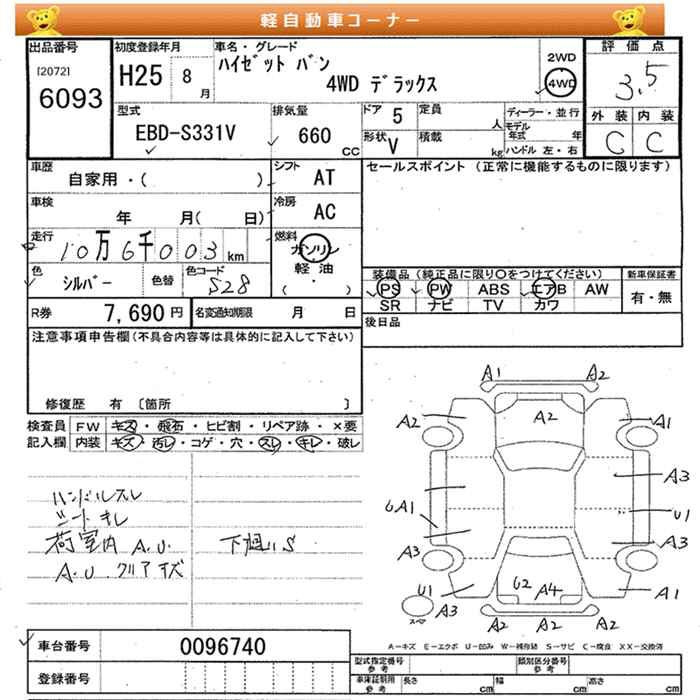 軽自動車コーナー
出品番号
[2072]
6093
初度登録年月
H25 8月
車名・グレード
ハイゼット バン
4WD デラックス
2WD
4WD
評価点
3.5
外装 内装
C C
型式
EBD-S331V
排気量
660 CC
ドア 5
定員 人
ディーラー・並行
モデル年式 年
形状 V
積載 kg
ハンドル 左・右
車歴
自家用・( )
シフト AT
セールスポイント (正常に機能するものに限ります)
車検 年 月( 日)
冷房 AC
走行 10万6千003km
燃料
ガソリン
軽油
( ・ )
色 シルバー
色替
色コード S28
装備品 (純正品に限り〇をつけてください)
新車保証書
PS PW ABS エアB AW
有・無
SR ナビ TV カワ
R券 7,690円
名変通知期限 月 日
後日品
注意事項申告欄(不具合内容等は具体的に記入して下さい)
修復歴 有 〔箇所 〕
検査員記入欄
FW キズ・飛石・ヒビ割・リペア跡・×要
内装 キズ・汚レ・コゲ・穴・スレ・キレ・破レ
ハンドルスレ
シートキレ
荷室内 A.U.
A.U. クリアキズ
下廻りS
A1 A2
A2 A2 A1
A3
UA1 U1
A3 A3
U1 U2 A4 A1
A3
スペア
A2 A2 A2
A-キズ E-エクボ U-凹み W-補修跡 S-サビ C-腐食 XX-交換済
車台番号 0096740
登録番号
型式指定番号 参考
類別区分番号 参考
車庫証明用 参考
長さ cm 幅 cm 高さ cm